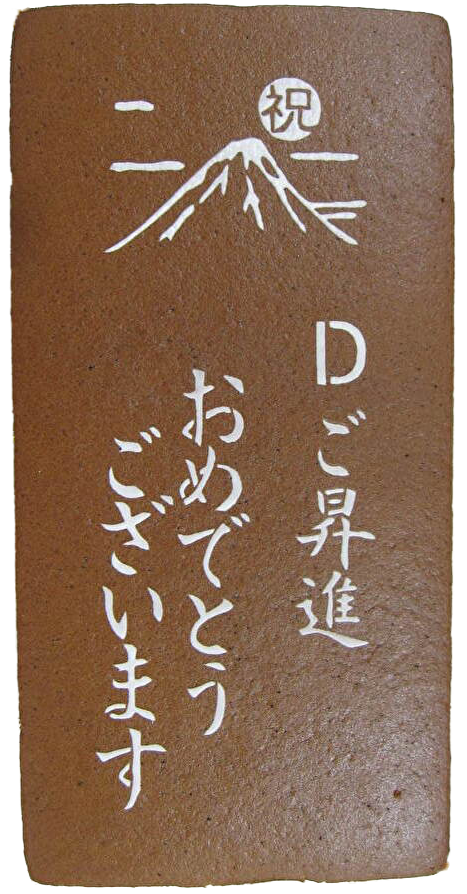 祝
Dご昇進
おめでとう
ございます